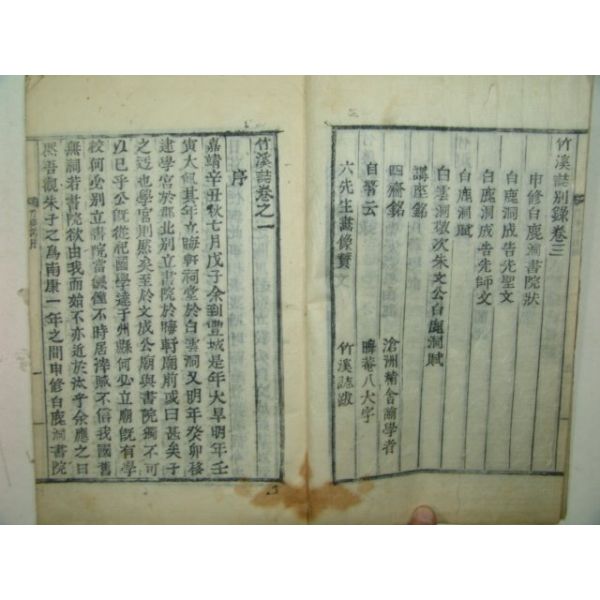 竹溪誌別錄卷三
申修白鹿洞書院狀
白鹿洞成告先聖文
白鹿洞成告先師文
白鹿洞賦
白雲洞次朱文公白鹿洞賦
講座銘
四齋銘 滄洲精舍諭學者
自警云 晦菴八大字
六先生畫像贊 竹溪誌跋
竹溪誌卷之一
序
嘉靖辛丑秋七月戊子余到豐城是年大旱明年壬
寅大飢其年立晦軒祠堂於白雲洞又明年癸卯移
建學宮於郡北別立書院於晦軒廟前或曰甚矣子
之迂也學宮則然矣至於文成公廟與書院獨不可
以已乎公旣從祀國學達于州縣何必立廟旣有學
校何必別立書院當飢饉不時居滓賊不信我國舊
無洞若書院欲由我而始不亦近於汰乎余應之曰
熙吾觀朱子之爲南康一年之間申修白鹿洞書院